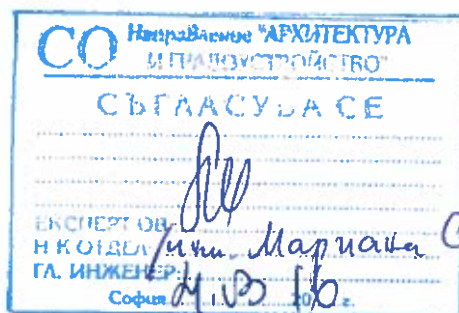 СО Направление "АРХИТЕКТУРА
И ГРАДОУСТРОЙСТВО"
СЪГЛАСУВА СЕ
ЕКСПЕРТ ОВ:
Н-К ОТДЕЛ: инж. Мариана С
ГЛ. ИНЖЕНЕР:
София 20 16 г.